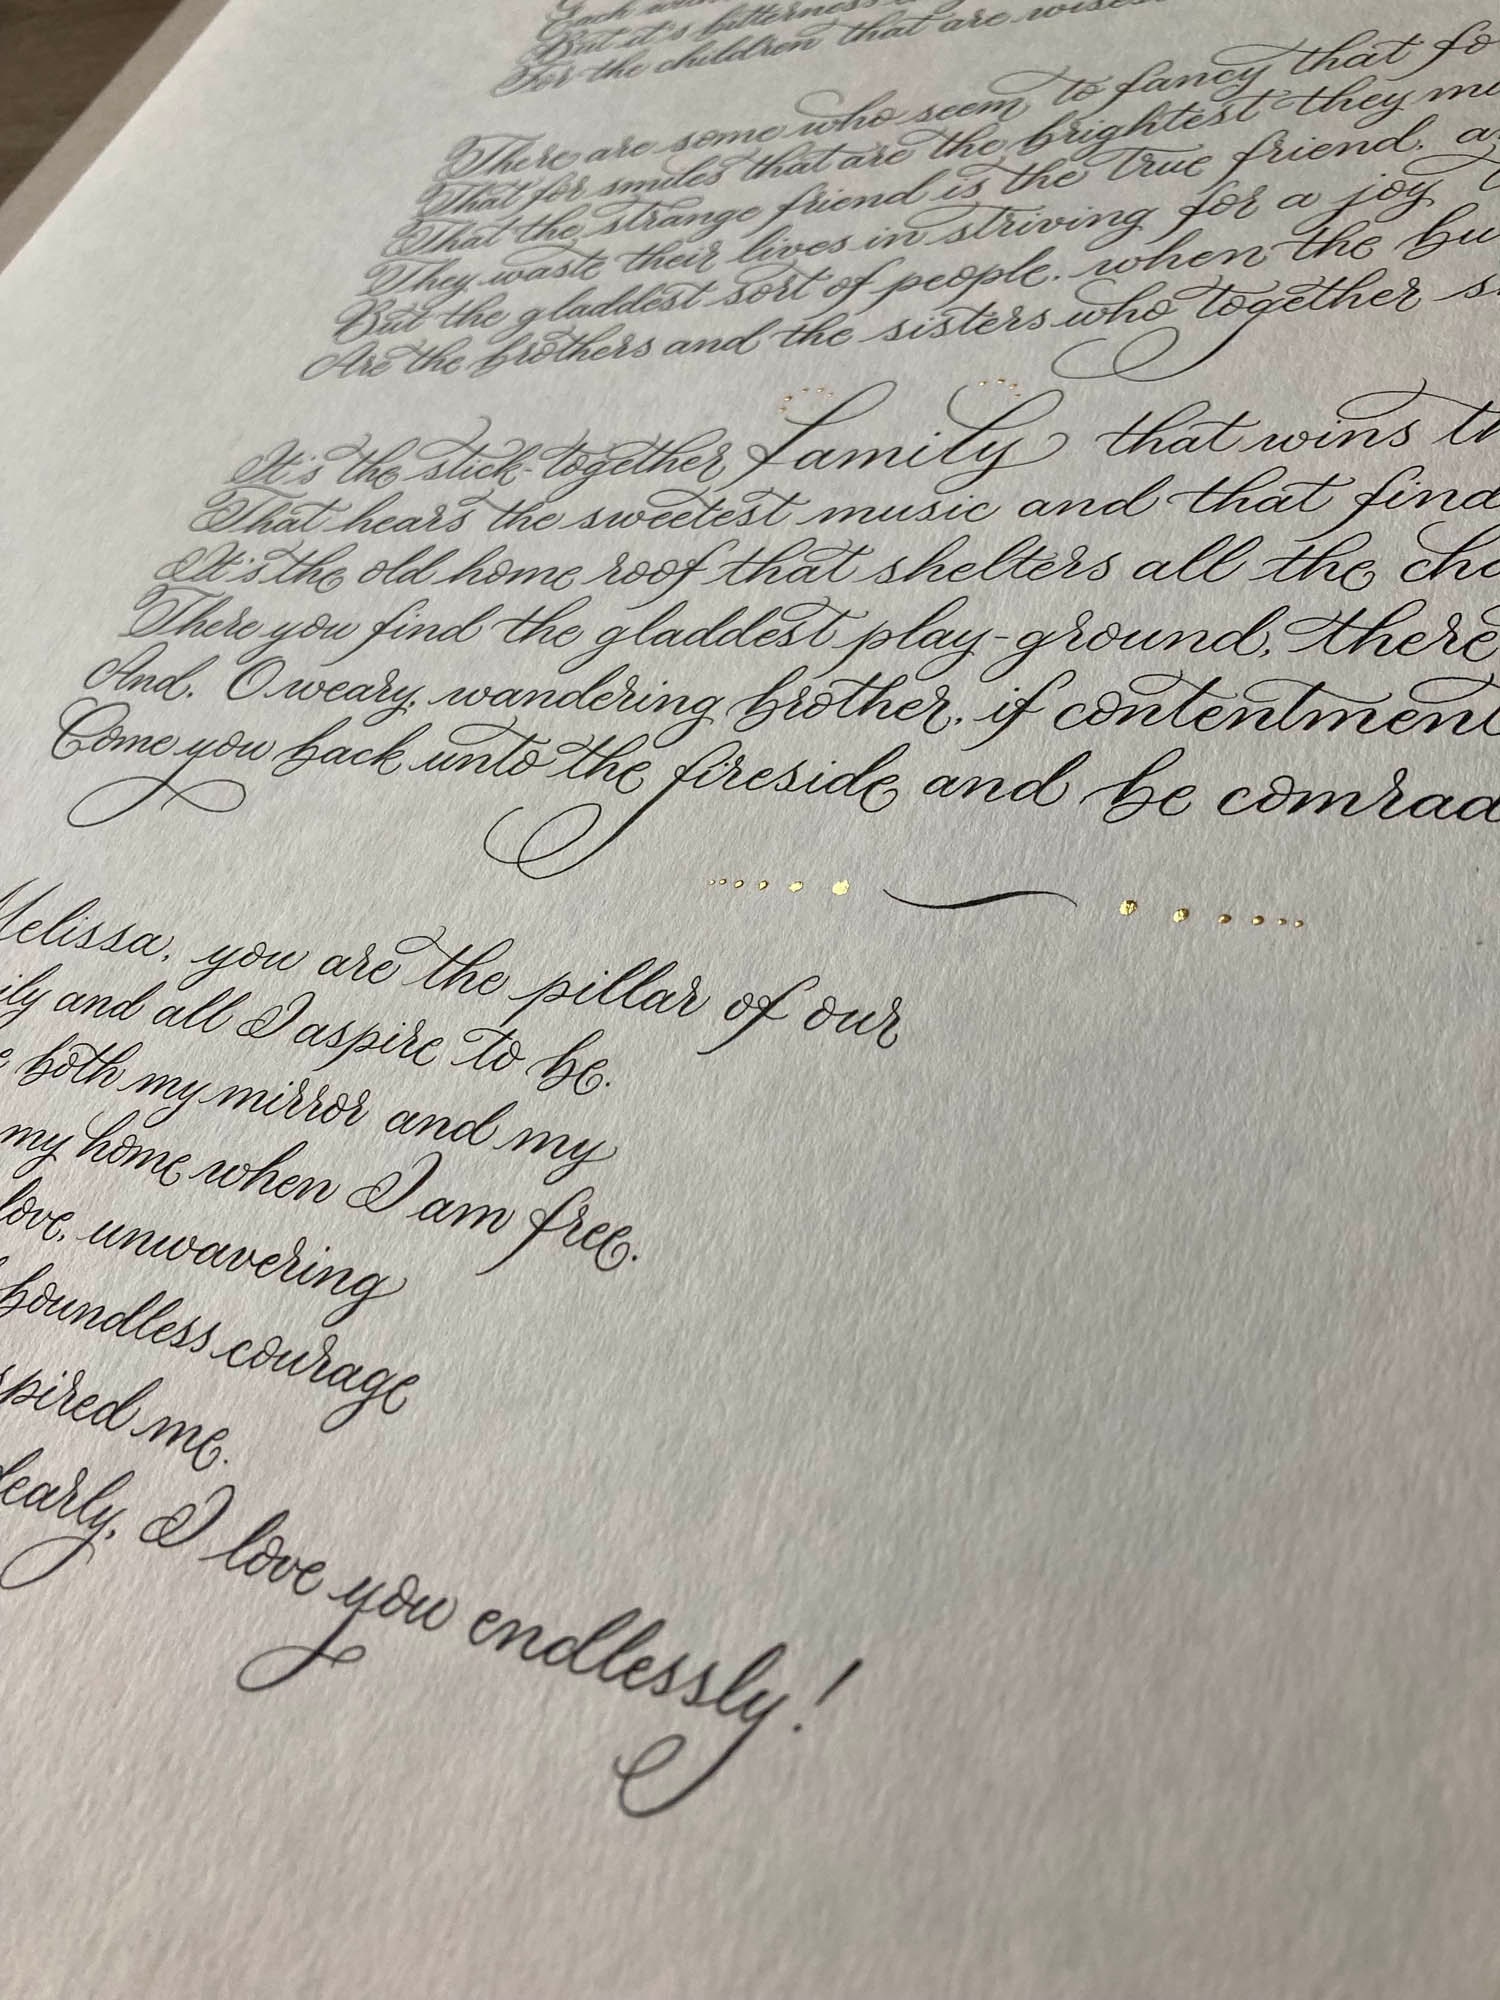 Each
But it's bitterness
For the children that are
There are some who seem to fancy that fo
That for smiles that are the brightest they mu
That the strange friend is the true friend, a
They waste their lives in striving for a joy
But the gladdest sort of people, when the bu
Are the brothers and the sisters who together s
It's the stick-together family that wins th
That hears the sweetest music and that find
It's the old home roof that shelters all the cha
There you find the gladdest play-ground, there
And, O weary, wandering brother, if contentment
Come you back unto the fireside and be comrad
Melissa, you are the pillar of our
ily and all I aspire to be.
e both my mirror and my
my home when I am free.
love, unwavering
boundless courage
spired me.
dearly, I love you endlessly!